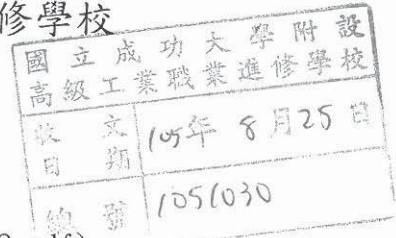 修學校
國立成功大學附設
高級工業職業進修學校
收文日期
105年8月25日
總號
1051030